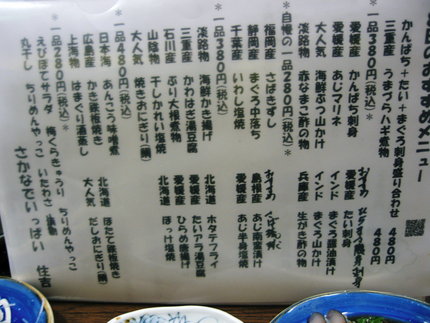 本日のおすすめメニュー
かんぱち+たい+まぐろ刺身盛り合わせ 480円
三重産 うまづらハギ煮物 480円
*一品380円(税込)*
愛媛産 かんぱち刺身
愛媛産 あじマリネ たい刺身
大人気 海鮮ぶつ山かけ インド まぐろ醤油漬け
淡路物 赤なまこ酢の物 インド まぐろ山かけ
兵庫産 生がき酢の物
*自慢の一品280円(税込)*
福岡産 さばきずし
静岡産 まぐろ中落ち
千葉産 いわし塩焼
島根産 あじ南蛮漬け
愛媛産 あじ半身塩焼
*一品380円(税込)*
淡路物 海鮮かき揚げ 北海道 ホタテフライ
三重産 かわはぎ湯豆腐 愛媛産 たいアラ湯豆腐
石川産 ぶり大根煮物 愛媛産 ひらめ唐揚げ
山陰物 干しかれい塩焼 北海道 ほっけ塩焼
大人気 焼きおにぎり(鯛)
*一品480円(税込)*
日本海 あんこう味噌煮 北海道 ほたて鉄板焼き
広島産 かき鉄板焼き 大人気 だしおにぎり(鯛)
上海物 はまぐり酒蒸し
*一品280円(税込)*
えびポテサラダ 梅くらきゅうり ちりめんやっこ
丸干し ちりめんやっこ いたわさ
さかなでいっぱい 住吉